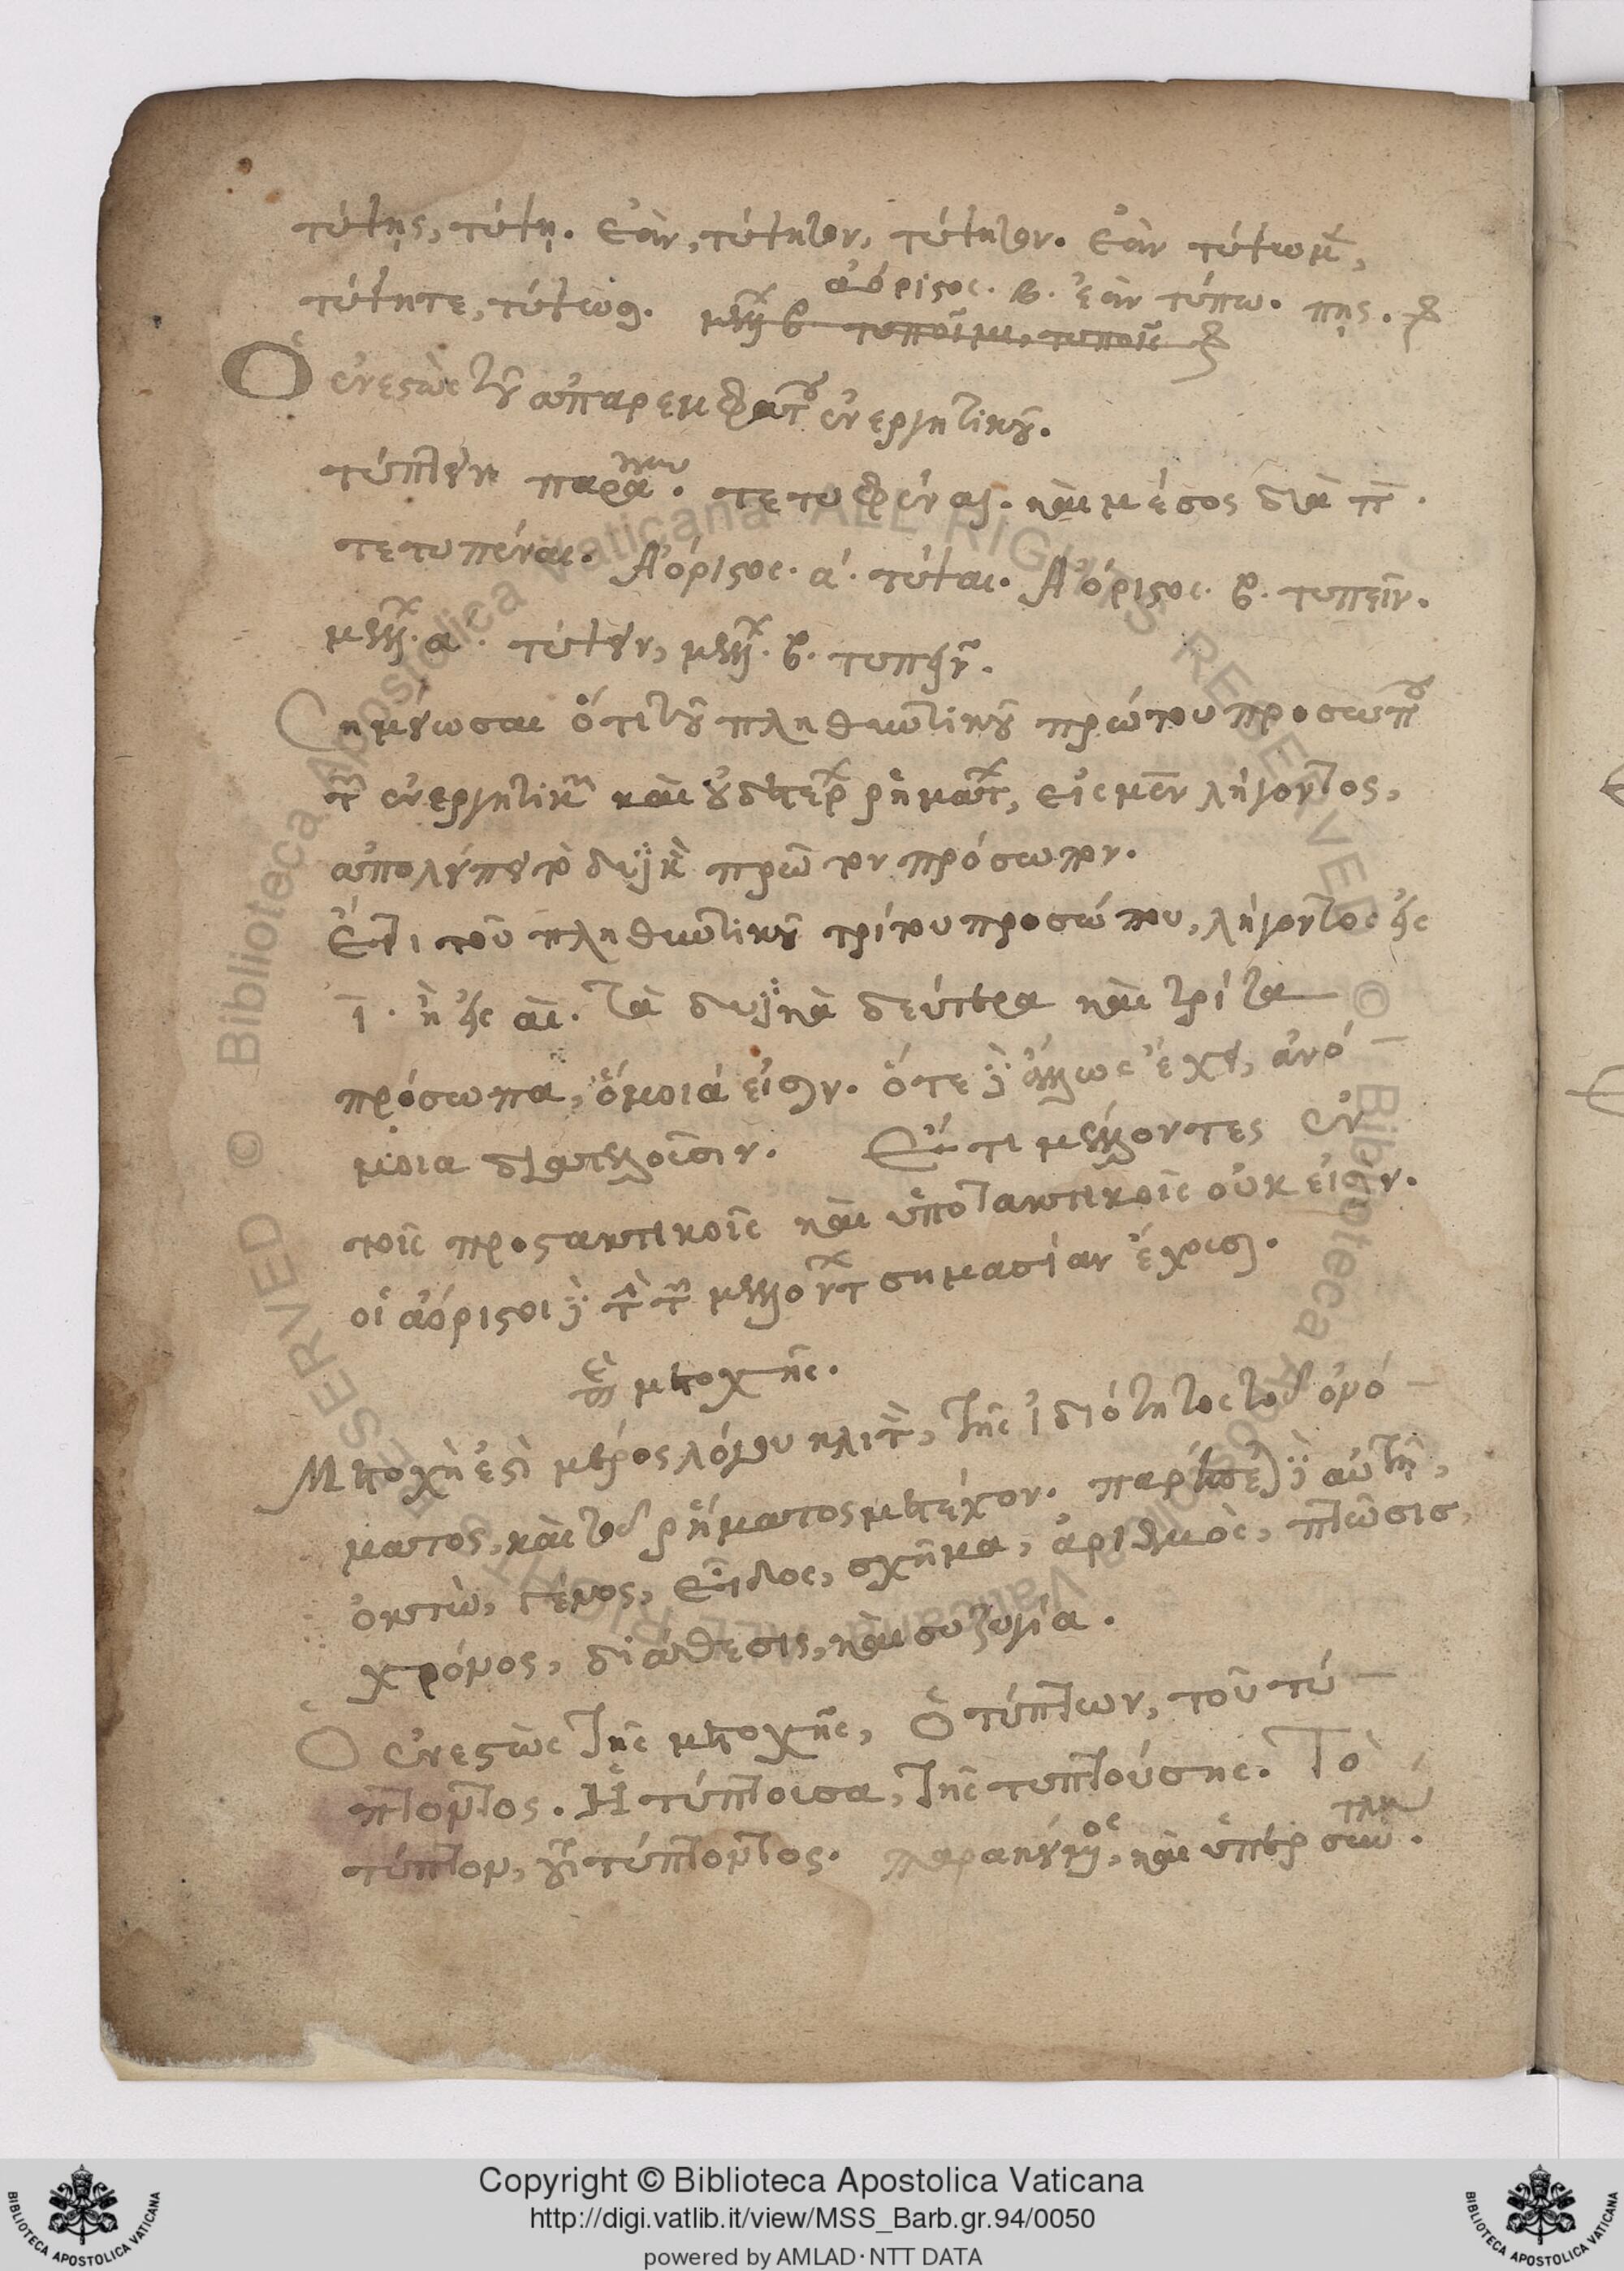 τύψῃς, τύψῃ. ἐὰν, τύψητον, τύψητον. ἐὰν τύψωμ,
τύψητε, τύψωσι. ἀόριστος. β. ἐὰν τύπω. πῃς.
μέλλ β τυποῖμι, τυποῖς
Ὁ ἐνεστὼς τοῦ ἀπαρεμφάτου ἐνεργητικοῦ.
τύπτειν παρακ. τετυφέναι. καὶ μέσος διὰ π.
τετυπέναι. Ἀόριστος. α. τύψαι. Ἀόριστος. β. τυπεῖν.
μέλλ. α. τύψειν, μέλλ. β. τυπεῖν.
Σημείωσαι ὅτι τοῦ πληθυντικοῦ πρώτου προσώπου
τῶν ἐνεργητικῶν καὶ οὐδετέρ ῥημάτ, εἰς μεν λήγοντος,
ἀπολείπει τὸ δυϊκὸν πρῶτον πρόσωπον.
Ἔτι τοῦ πληθυντικοῦ τρίτου προσώπου, λήγοντος εἰς
ι. ἢ εἰς αι. τὰ δυϊκὰ δεύτερα καὶ τρίτα
πρόσωπα, ὅμοιά εἰσιν. ὅτε δὲ ἄλλως ἔχει, ἀνό
μοια διατελοῦσιν. Ἔτι μέλλοντες ἐν
τοῖς προστακτικοῖς καὶ ὑποτακτικοῖς οὐκ εἰσιν.
οἱ ἀόριστοι δὲ τὴν τῶν μελλόντ σημασίαν ἔχουσι.
περὶ μετοχῆς.
Μετοχὴ ἐστὶ μέρος λόγου κλιτὸν, τῆς ἰδιότητος τοῦ ὀνό
ματος, καὶ τοῦ ῥήματος μετέχον. παρέπεται δὲ αὐτῇ,
ὀκτὼ, γένος, εἶδος, σχῆμα, ἀριθμὸς, πτῶσις,
χρόνος, διάθεσις, καὶ συζυγία.
Ὁ ἐνεστὼς τῆς μετοχῆς, Ὁ τύπτων, τοῦ τύ
πτοντος. Ἡ τύπτουσα, τῆς τυπτούσης. Τὸ
τύπτον, τοῦ τύπτοντος. παρακείμενος, καὶ ὑπερσυντελικ.
Copyright © Biblioteca Apostolica Vaticana
http://digi.vatlib.it/view/MSS_Barb.gr.94/0050
powered by AMLAD·NTT DATA